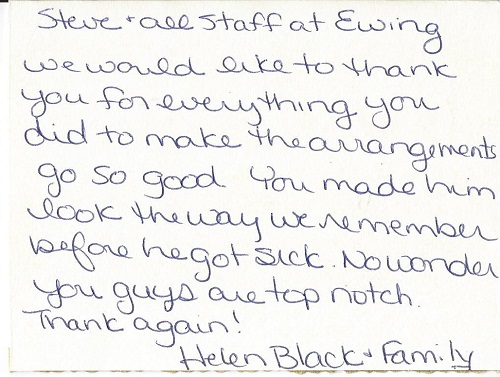 Steve + all Staff at Ewing
we would like to thank
you for everything you
did to make the arrangements
go so good. You made him
look the way we remember
before he got sick. No wonder
you guys are top notch.
Thank again!
Helen Black + Family